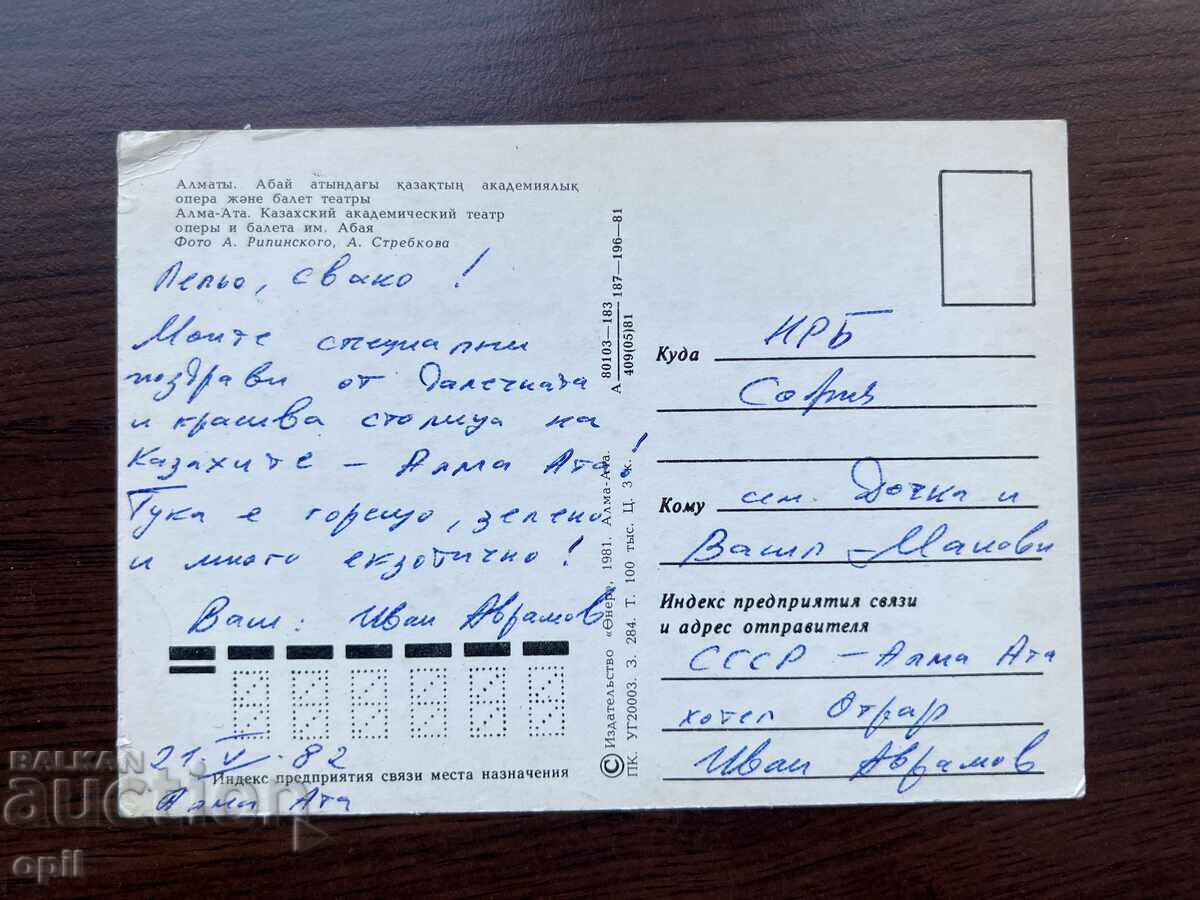 Алматы. Абай атындағы қазақтың академиялық
опера және балет театры
Алма-Ата. Казахский академический театр
оперы и балета им. Абая
Фото А. Рипинского, А. Стребкова
Лельо, свако!
Моите специални
поздрави от далечната
и красива столица на
Казахите – Алма Ата!
Тука е горещо, зелено
и много екзотично!
Ваш: Иван Аврамов
21.V.82
Индекс предприятия связи места назначения
Алма Ата
А 80103—183 187—196—81
409(05)81
© Издательство «Өнер», 1981. Алма-Ата.
ПК. УГ20003. З. 284. Т. 100 тыс. Ц. 3 к.
Куда НРБ
София
Кому сем. Дочка и
Васил Манови
Индекс предприятия связи
и адрес отправителя
СССР – Алма Ата
хотел Отрар
Иван Аврамов
BALKAN
auction
opil